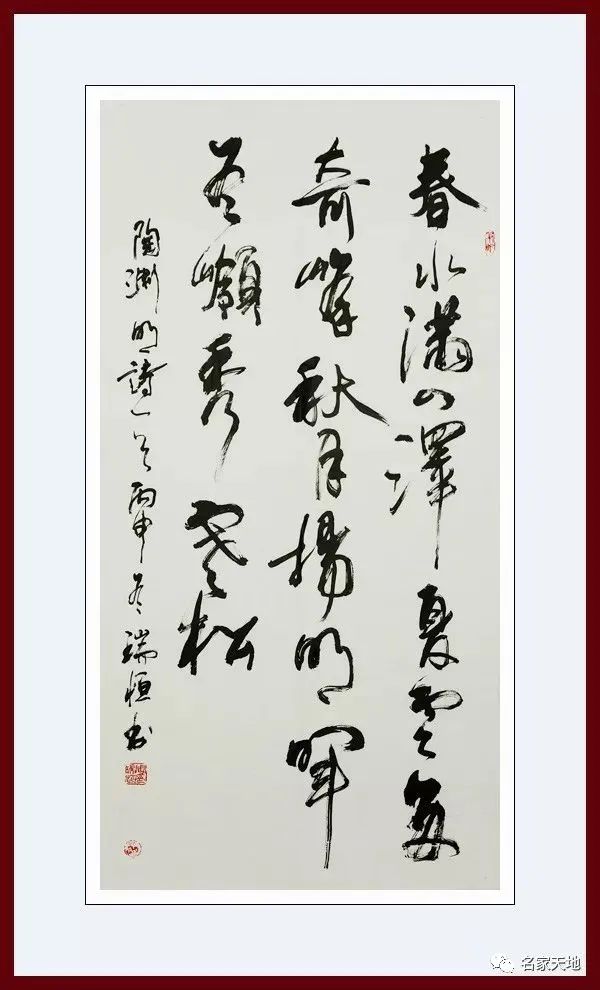 春水滿四澤夏雲多
奇峰秋月揚明暉
冬嶺秀寒松
陶渊明詩一首丙申冬瑞恒書
名家天地